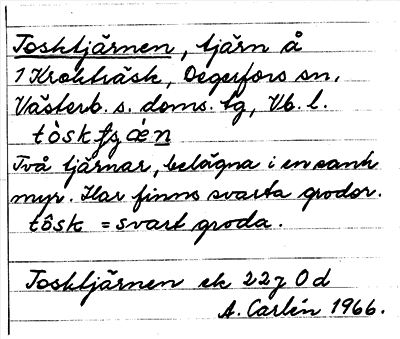 Tosktjärnen, tjärn å
1 Krokträsk, Degerfors sn,
Västerb. s. doms. tg, Vb. l.
Två tjärnar, belägna i en sank
myr. Här finns svarta grodor.
tôsk = svart groda.
Tosktjärnen ek 22 J 0 d
A. Carlén 1966.